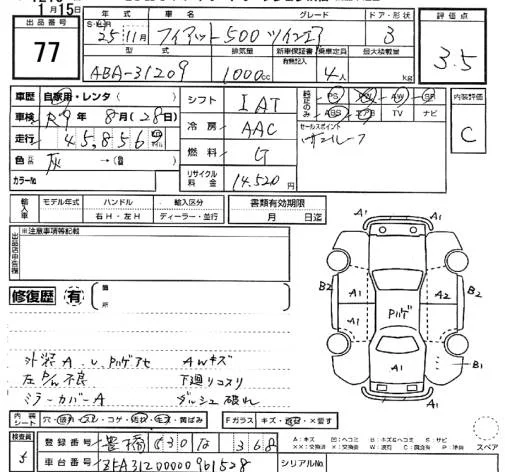 1月15日
出品番号 年式 車名 グレード ドア・形状 評価点
77 25年11月 フィアット500 ツインエア 3 3.5
型式 排気量 新車保証書 乗車定員 最大積載量
有無記入
ABA-31209 1000cc 4人 kg
車歴 自家用・レンタ( ) シフト IAT 純正のみ PS PW AW SR 内装評価
車検 R9年8月(28日) ABS エアB TV ナビ C
走行 45,856 冷房 AAC セールスポイント
色 灰 →( ) 燃料 G サンルーフ
カラーNo リサイクル料金 14,520円
輸入車 モデル年式 ハンドル 輸入区分 書類有効期限
右H・左H ディーラー・並行 月 日迄
出品店申告欄 ※注意事項等記載
修復歴 有 箇所
A1
A1
B2 A1 A2 B2
A1 Pハゲ
A1 B1
A1
外装A、U Pハゲアセ AWキズ
左 不良 下廻リコスリ
ミラーカバーA ダッシュ破れ
内装シート 穴・汚れ・スレ・コゲ・黄ばみ Fガラス キズ・×要す
スペア
検査員 登録番号 豊橋 530 な 368
A:キズ B:ヘコミ S:サビ
車台番号 ZFA3120000961528 シリアルNo